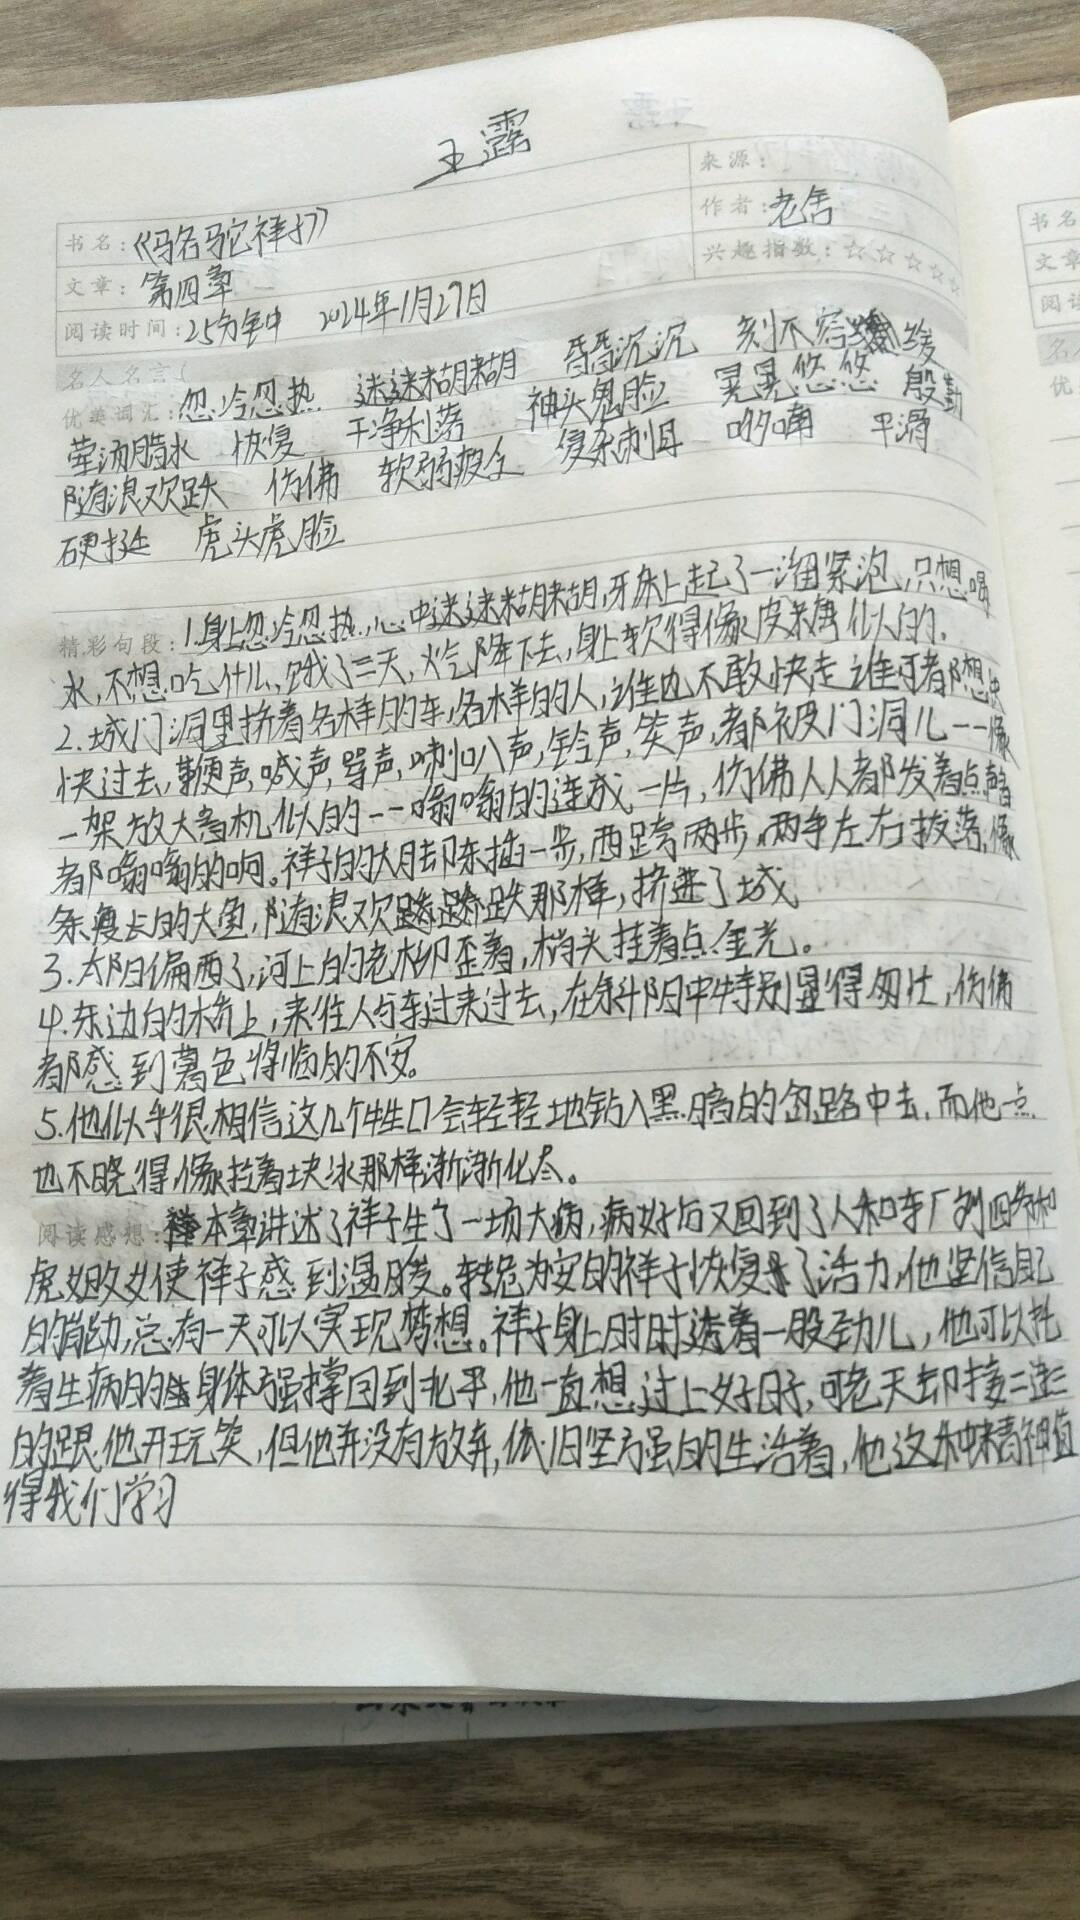 王露
来源：
书名：《骆驼祥子》
作者：老舍
文章：第四章
兴趣指数：☆☆☆☆☆
阅读时间：25分钟 2024年1月27日
名人名言
优美词汇：忽冷忽热 迷迷糊糊 昏昏沉沉 刻不容缓
荤汤腊水 恢复 干净利落 神头鬼脸 晃晃悠悠 殷勤
随浪欢跃 仿佛 软弱疲乏 复杂刺耳 哆嗦 平滑
硬挺 虎头虎脸
精彩句段：1.身上忽冷忽热，心中迷迷糊糊，牙床上起了一溜紫泡，只想喝
水，不想吃什么，饿了三天，火气降下去，身上软得像皮糖似的。
2.城门洞里挤着各样的车，各样的人，谁也不敢快走谁可都想快
快过去，鞭声，喊声，骂声，喇叭声，铃声，笑声，都被门洞儿--像
一架放大音机似的--嗡嗡的连成一片，仿佛人人都发着点声音
都嗡嗡的响。祥子的大脚东插一步，西跨两步，两手左右拨落，像
条瘦长的大鱼，随浪欢跃那样，挤进了城
3.太阳偏西了，河上的老柳歪着，梢头挂着点金光。
4.东边的桥上，来往人与车过来过去，在斜阳中特别显得匆忙，仿佛
都感到暮色将临的不安。
5.他似乎很相信这几个牲口会轻轻地钻入黑暗的岔路中去，而他一点
也不晓得，像拉着块冰那样渐渐化尽。
阅读感想：本章讲述了祥子生了一场大病，病好后又回到了人和车厂刘四爷和
虎妞父女使祥子感到温暖。转危为安的祥子恢复了活力，他坚信自己
的劳动，总有一天可以实现梦想。祥子身上时时透着一股劲儿，他可以托
着生病的身体强撑回到北平，他一直想过上好日子，可老天却接二连三
的跟他开玩笑，但他并没有放弃，依旧坚强的生活着，他这种精神值
得我们学习
书名
文章
阅读
名人
优